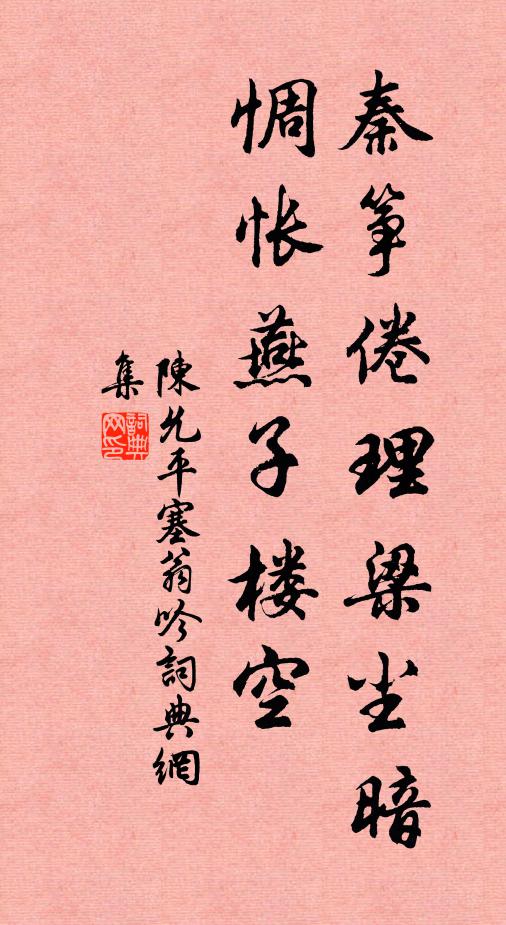 秦筝倦理梁尘暗
惆怅燕子楼空
陳允平塞翁吟詞典網
集
詞典网印